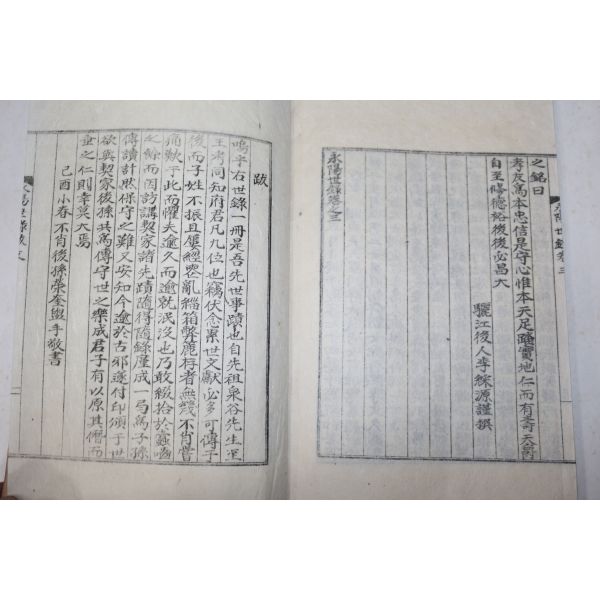 之銘曰
孝友爲本忠信是守心惟本天足踏實地仁而有壽天爵
自至修德裕後後必昌大
驪江後人李綵源謹撰
永陽世錄卷之三
永陽世錄卷三
跋
嗚乎右世錄一冊是吾先世事蹟也自先祖泉谷先生至
王考同知府君凡几位也竊伏念累世文獻必多可傳于
後而子姓不振且屢經喪亂緗箱弊麓存者無幾不肖嘗
痛歎于此而懼夫逾久而逾就泯沒也乃敢綴拾於蠹嚙
之餘而因訪講契家諸先蹟隨得隨錄屋成一局爲子孫
傳讀計然保守之難又安知今逾於古邪遂付印頒于世
欲與契家後孫共爲傳守世之樂成君子有以原其情而
垂之仁則幸莫大焉
己酉小春不肖後孫榮奎盥手敬書
永陽世錄跋